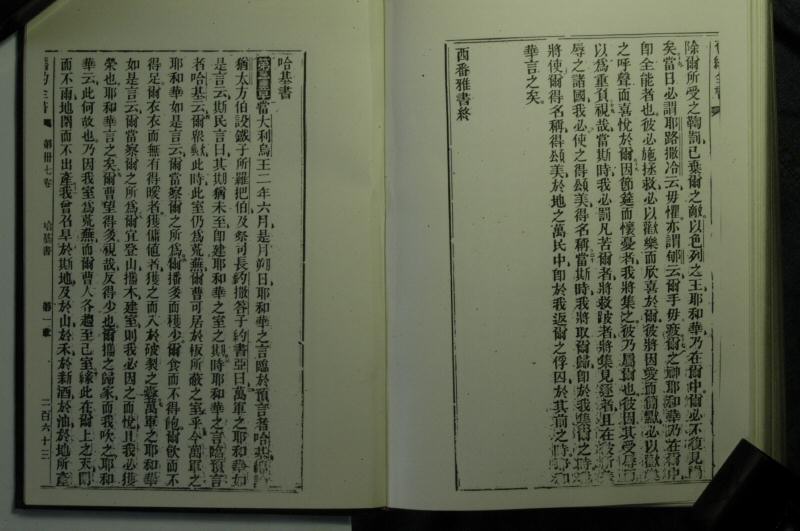 除爾所受之鞫罰已棄爾之敵以色列之王耶和華乃在爾中爾必不復見
矣當日必謂耶路撒冷云毋懼亦謂郇云爾手毋疲爾之神耶和華乃在爾中
卽全能者也彼必施拯救必以歡樂而欣喜於爾彼將因愛而簡默必以歡
之呼聲而喜悅於爾因節筵而懷憂者我將集之彼乃屬爾也彼因其受辱
以為重負視哉當斯時我必罰凡苦爾者將救跛者將集見逐者且在彼所
辱之諸國我必使之得頌美得名稱當斯時我將取爾歸卽於我集爾之時
將使爾得名稱得頌美於地之萬民中卽於我返爾之俘囚於其前之時
華言之矣
西番雅書終
哈基書
當大利烏王二年六月是月朔日耶和華之言臨於預言者哈基
猶太方伯設鐵子所羅把伯及祭司長約撒答子約書亞曰萬軍之耶和華如
是言云斯民言曰其期猶未至卽建耶和華之室之期時耶和華之言臨預言
者哈基云爾衆歟此時此室仍為荒蕪爾曹可居於板所蔽之室乎今萬軍之
耶和華如是言云爾當察爾之所為爾播多而穫少爾食而不得飽爾飲而不
得足爾衣衣而無有得暖者獲傭值者獲之而入於破裂之囊萬軍之耶和華
如是言云爾當察爾之所為爾宜登山攜木建室則我必因之而悅且我必獲
榮也耶和華言之矣爾曹望得多視哉反得少也爾攜之歸家而我吹之耶和
華云此何故也乃因我室為荒蕪而爾曹人各趨至己室緣此在爾上之天閉
而不雨地閉而不出產我曾召旱於斯地及於山於禾於新酒於油於地所產
第卅七卷 哈基書 第一章 二百六十三